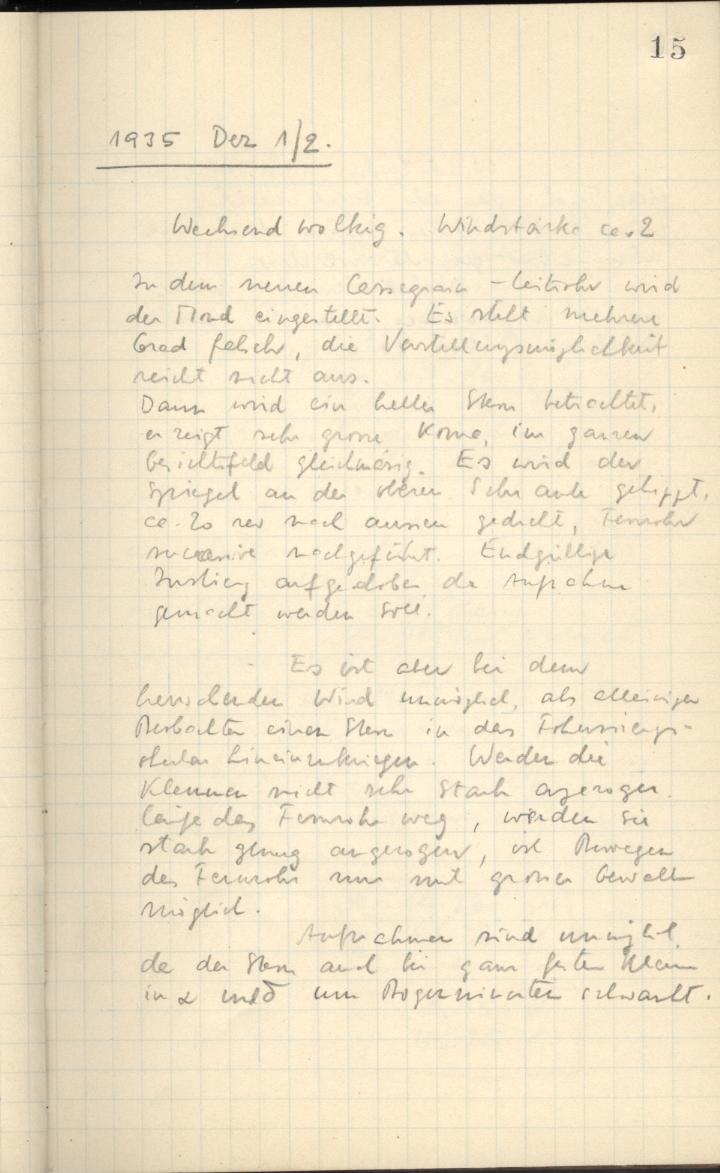 15
1935 Dez 1/2.
Wechsend wolkig. Windstärke ca. 2
In dem neuen Cassegrain-Leitrohr wird
der Mond eingestellt. Es stellt mehrere
Grad falsch, die Verstellungsmöglichkeit
reicht nicht aus.
Dann wird ein heller Stern betrachtet,
er zeigt sehr grosse Koma, im ganzen
Gesichtsfeld gleichmässig. Es wird der
Spiegel an der oberen Schraube gekippt,
ca. 20 rev nach aussen gedreht, Fernrohr
successive nachgeführt. Endgültige
Justierg aufgeschoben, da Aufnahme
gemacht werden soll.
Es ist aber bei dem
herrschenden Wind unmöglich, als alleiniger
Beobachter einen Stern in das Fokussierungs-
okular hineinzukriegen. Werden die
Klemmen nicht sehr stark angezogen,
läuft das Fernrohr weg, werden sie
stark genug angezogen, ist Bewegen
des Fernrohrs nur mit grosser Gewalt
möglich.
Aufnahmen sind unmöglich,
da der Stern auch bei ganz festen Klemm
in α und δ um Bogenminuten schwankt.